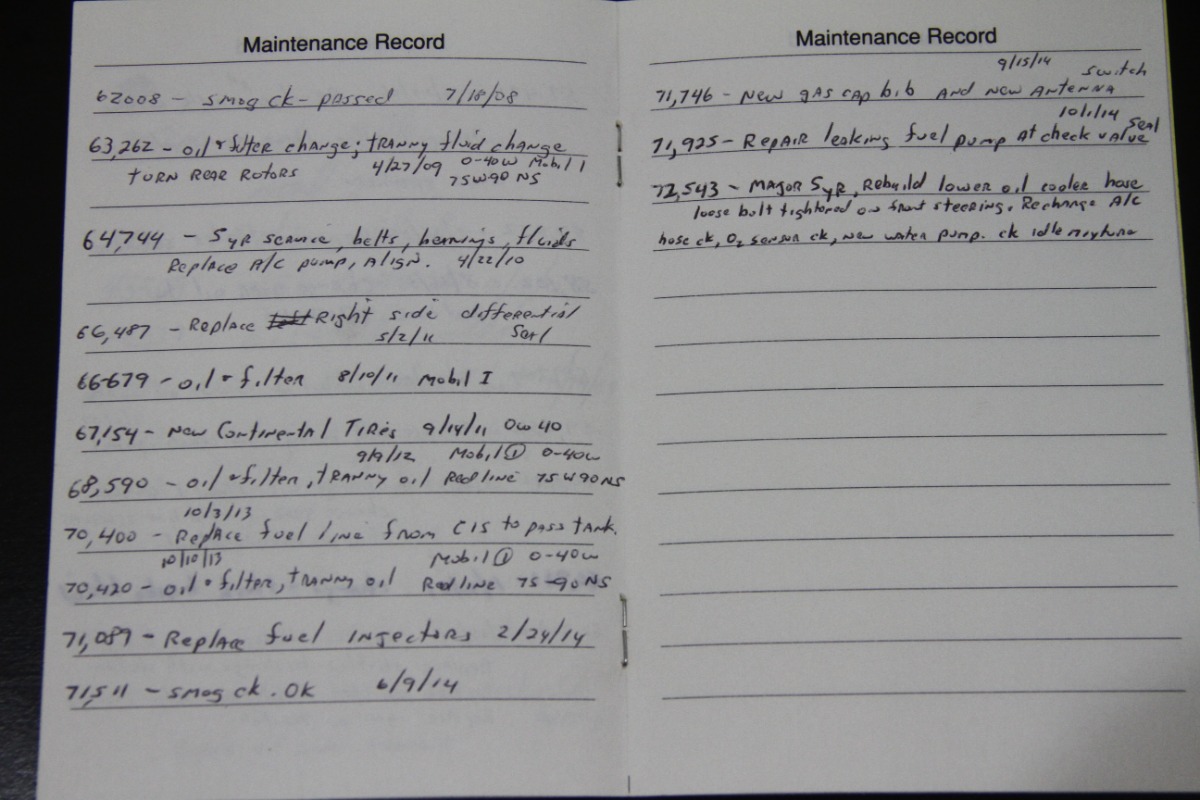 Maintenance Record
62008 - smog ck - passed 7/18/08
63,262 - oil & filter change; tranny fluid change
turn rear rotors 4/27/09 0-40w Mobil 1
75W90 NS
64,744 - 5 yr service, belts, bearings, fluids
Replace A/C pump, Align. 4/22/10
66,487 - Replace Right side differential
5/2/11 Seal
66679 - oil & filter 8/10/11 Mobil I
67,154 - New Continental Tires 9/14/11 0w40
9/9/12 Mobil 1 0-40w
68,590 - oil & filter, tranny oil Redline 75W90NS
10/3/13
70,400 - Replace fuel line from CIS to pass tank.
10/10/13 Mobil 1 0-40w
70,420 - oil & filter, tranny oil Redline 75-90NS
71,089 - Replace fuel injectors 2/24/14
71,511 - smog ck. OK 6/9/14
Maintenance Record
9/15/14 switch
71,746 - New gas cap bib and new antenna
10/1/14 seal
71,925 - Repair leaking fuel pump at check valve
72,543 - Major 5yr, Rebuild lower oil cooler hose
loose bolt tightened on front steering. Recharge A/C
hose ck, O2 sensor ck, new water pump. ck idle mixture